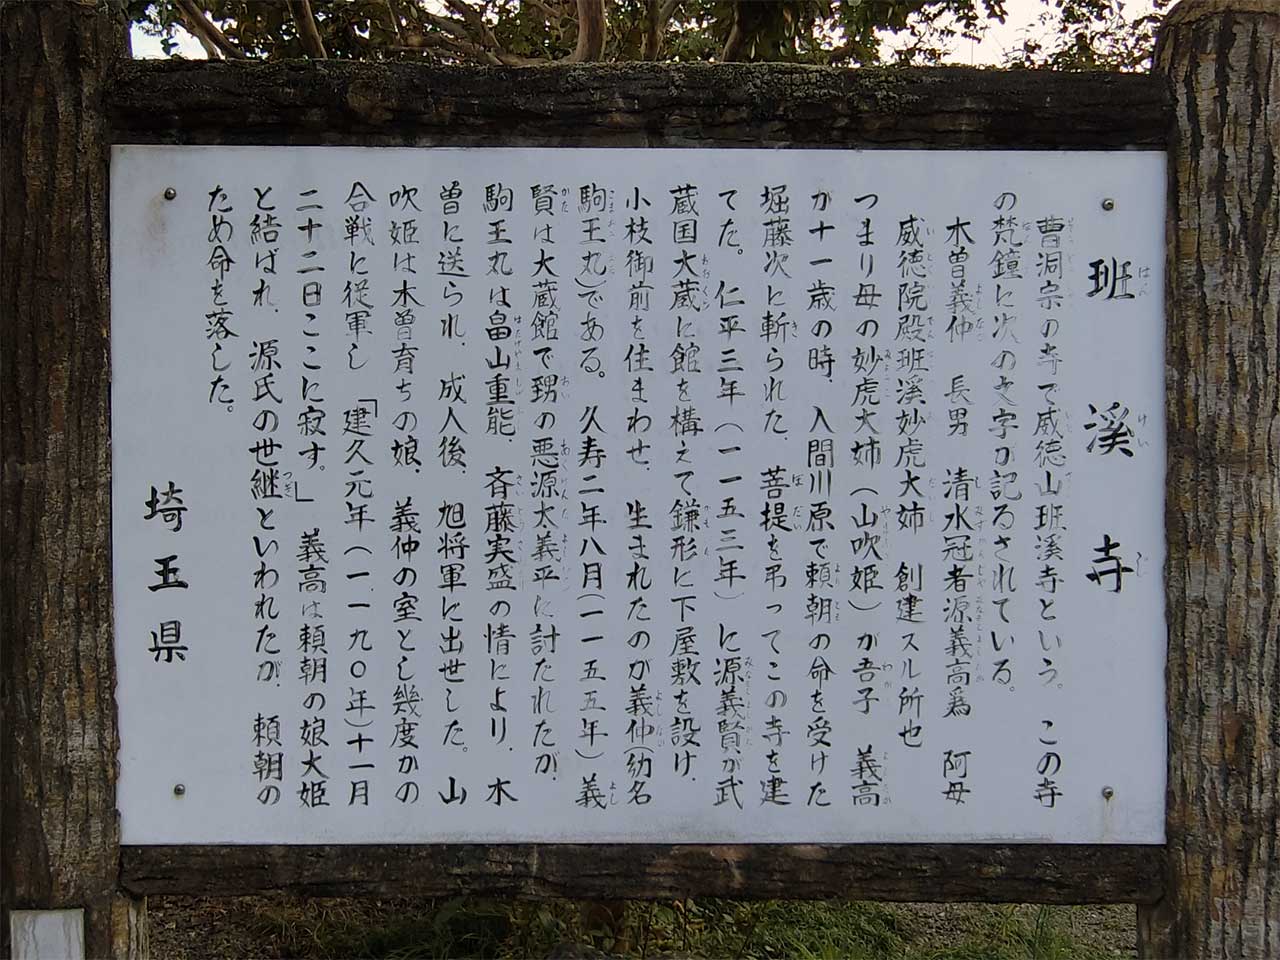 班渓寺
曹洞宗の寺で威徳山班渓寺という。この寺
の梵鐘に次の文字が記るされている。
木曽義仲　長男　清水冠者源義高爲　阿母
威徳院殿班渓妙虎大姉　創建スル所也
つまり母の妙虎大姉（山吹姫）が吾子　義高
が十一歳の時、入間川原で頼朝の命を受けた
堀藤次に斬られた、菩提を弔ってこの寺を建
てた。仁平三年（一一五三年）に源義賢が武
蔵国大蔵に館を構えて鎌形に下屋敷を設け、
小枝御前を住まわせ、生まれたのが義仲（幼名
駒王丸）である。久寿二年八月（一一五五年）義
賢は大蔵館で甥の悪源太義平に討たれたが、
駒王丸は畠山重能、斉藤実盛の情により、木
曽に送られ、成人後、旭将軍に出世した。山
吹姫は木曽育ちの娘、義仲の室とし幾度かの
合戦に従軍し「建久元年（一、一九〇年）十一月
二十二日ここに寂す。」義高は頼朝の娘大姫
と結ばれ、源氏の世継といわれたが、頼朝の
ため命を落した。
埼玉県